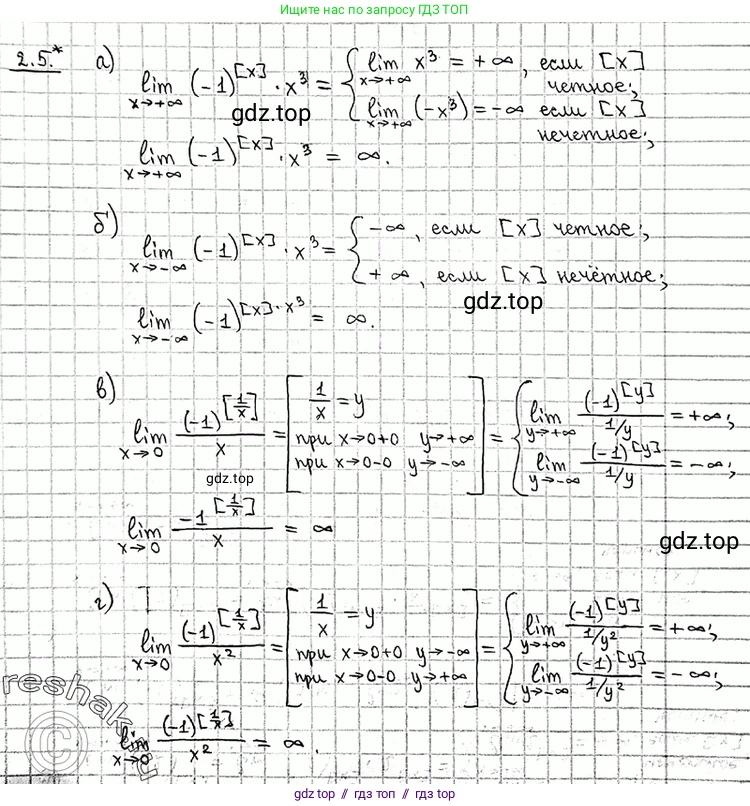 Ищите нас по запросу ГДЗ ТОП
2.5.* а) lim x→+∞ (-1)^[x] · x³ = { lim x→+∞ x³ = +∞, если [x] четное;
lim x→+∞ (-x³) = -∞ если [x] нечетное;
gdz.top
lim x→+∞ (-1)^[x] · x³ = ∞.
б) lim x→-∞ (-1)^[x] · x³ = { -∞, если [x] четное;
+∞, если [x] нечётное;
gdz.top
lim x→-∞ (-1)^[x] · x³ = ∞.
в) lim x→0 (-1)^[1/x] / x = [ 1/x = y
при x→0+0 y→+∞
при x→0-0 y→-∞ ] = { lim y→+∞ (-1)^[y] / 1/y = +∞;
lim y→-∞ (-1)^[y] / 1/y = -∞;
gdz.top
lim x→0 -1^[1/x] / x = ∞
gdz.top
г) lim x→0 (-1)^[1/x] / x² = [ 1/x = y
при x→0+0 y→-∞
при x→0-0 y→+∞ ] = { lim y→+∞ (-1)^[y] / 1/y² = +∞;
lim y→-∞ (-1)^[y] / 1/y² = -∞;
lim x→0 (-1)^[1/x] / x² = ∞.
gdz.top // gdz.top // gdz.top